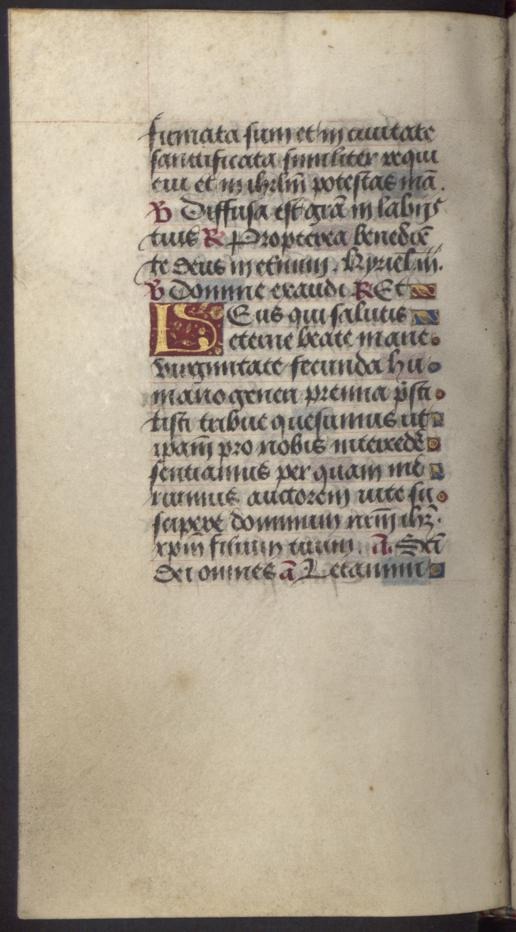 firmata sum et in civitate
sanctificata similiter requi
evi et in ihrlm potestas mea.
V Diffusa est gra in labiis
tuis R Propterea benedixit
te deus in eternum. Kyriel iii.
V Domine exaudi R Et
DEus qui salutis
eterne beate marie
virginitate fecunda hu
mano generi premia prsti
tisti tribue quesumus ut
ipam pro nobis intercede
sentiamus per quam me
ruimus auctorem vite su
scipere dominum nrm ihz.
xpm filium tuum. a. Scti
dei omnes a Letamini